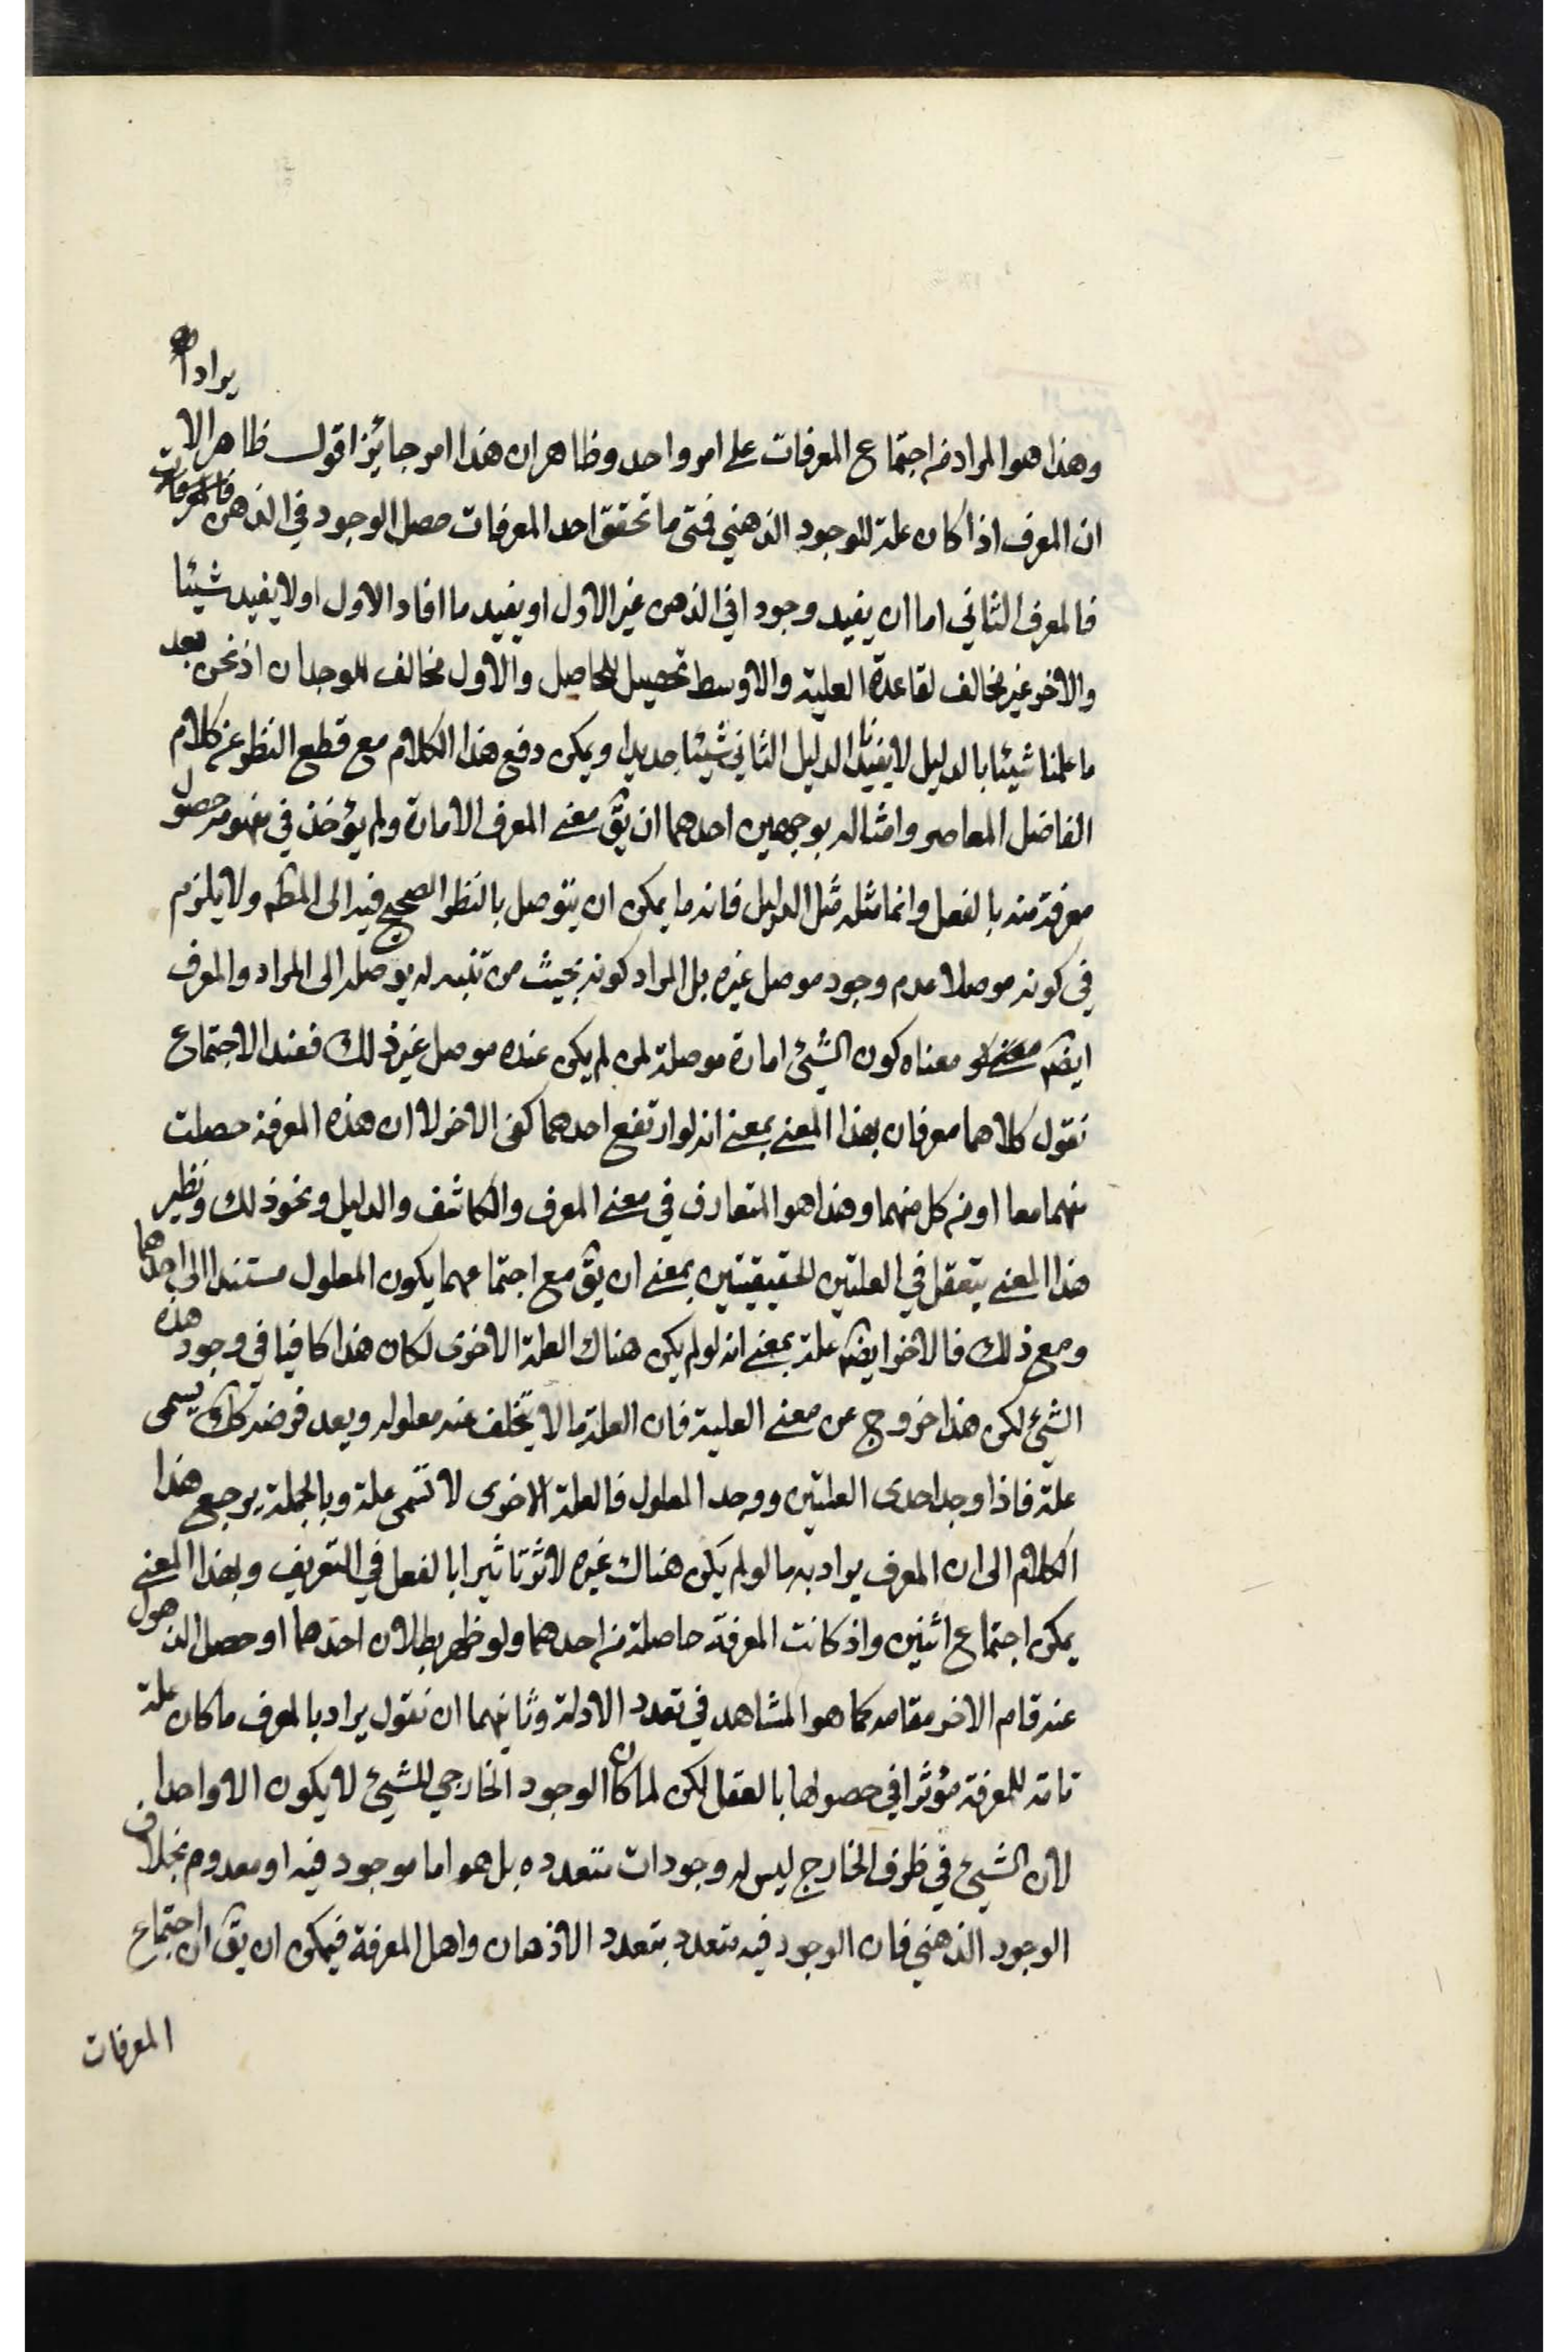 وهذا هو المراد من اجتماع المعرفات على امر واحد وظاهر ان هذا امر جائز اقول ظاهر الايراد
ان المعرف اذا كان علة للوجود الذهني فمتى ما تحقق احد المعرفات حصل الوجود في الذهن
فالمعرف الثاني اما ان يفيد وجودا في الذهن غير الاول او يفيد ما افاد الاول او لا يفيد شيئا
والاخر غير مخالف لقاعدة العلية والاوسط تحصيل للحاصل والاول مخالف للوجدان اذ نحن بعد
ما علمنا شيئا بالدليل لا يفيدنا الدليل الثاني شيئا جديدا ويمكن دفع هذا الكلام مع قطع النظر عن كلام
الفاضل المعاصر وامثاله بوجهين احدهما ان يق معنى المعرف الامارة ولم يؤخذ في مفهومه حصول
معرفة منه بالفعل وانما مثله مثل الدليل فانه ما يمكن ان يتوصل بالنظر الصحيح فيه الى المط ولا يلزم
في كونه موصلا عدم وجود موصل غيره بل المراد كونه بحيث من تنبه له يوصله الى المراد والمعرف
ايضا معناه كون الشيئ امارة موصلة لمن لم يكن عنده موصل غير ذلك فعند الاجتماع
نقول كلاهما معرفان بهذا المعنى بمعنى انه لو ارتفع احدهما كفى الاخر لا ان هذه المعرفة حصلت
منهما معا او من كل منهما وهذا هو المتعارف في معنى المعرف والكاشف والدليل ونحو ذلك ونظير
هذا المعنى يتعقل في العلتين الحقيقيتين بمعنى ان يق مع اجتماعهما يكون المعلول مستندا الى احدهما
ومع ذلك فالاخر ايضا علة بمعنى انه لو لم يكن هناك العلة الاخرى لكان هذا كافيا في وجود هذه
الشيئ لكن هذا خروج عن معنى العلية فان العلة ما لا يتخلف عنه معلوله وبعد فرضه كك يسمى
علة فاذا وجد احدى العلتين ووجد المعلول فالعلة الاخرى لا تسمى علة وبالجملة يرجع هذا
الكلام الى ان المعرف يراد به ما لو لم يكن هناك غيره لاثر تاثيرا بالفعل في التعريف وبهذا المعنى
يمكن اجتماع اثنين واذ كانت المعرفة حاصلة من احدهما ولو ظهر بطلان احدهما او حصل الذهول
عنه قام الاخر مقامه كما هو المشاهد في تعدد الادلة وثانيهما ان نقول يراد بالمعرف ما كان علة
تامة للمعرفة مؤثرا في حصولها بالفعل لكن لما كان الوجود الخارجي للشيئ لا يكون الا واحدا
لان الشيئ في ظرف الخارج ليس له وجودات متعدده بل هو اما موجود فيه او معدوم بخلاف
الوجود الذهني فان الوجود فيه متعدد بتعدد الاذهان واهل المعرفة فيمكن ان يق ان اجتماع
المعرفات